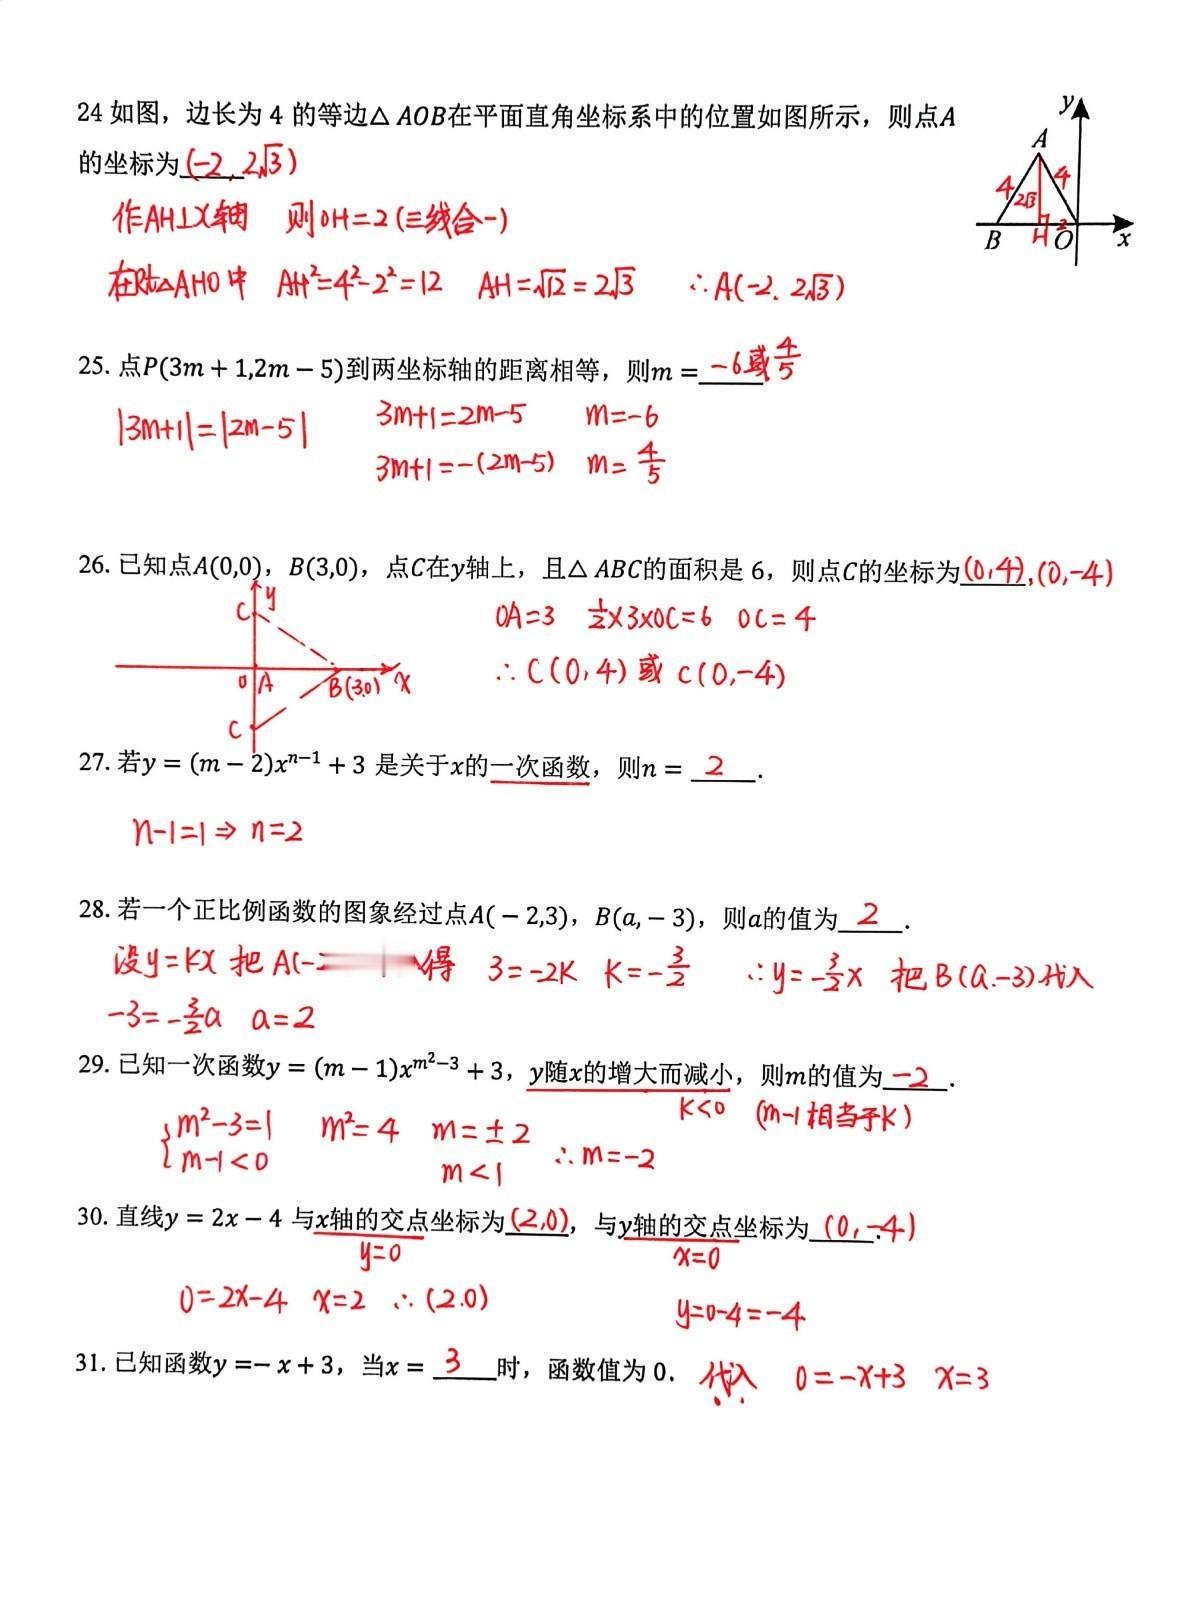 24 如图，边长为 4 的等边△ AOB在平面直角坐标系中的位置如图所示，则点A
的坐标为(-2, 2√3)
作AH⊥X轴 则OH=2(三线合一)
在Rt△AHO中 AH²=4²-2²=12 AH=√12=2√3 ∴A(-2. 2√3)
y
A
4 2√3 4
B H 2 O x
25. 点P(3m + 1,2m − 5)到两坐标轴的距离相等，则m = -6或4/5
|3m+1|=|2m-5| 3m+1=2m-5 m=-6
3m+1=-(2m-5) m=4/5
26. 已知点A(0,0)，B(3,0)，点C在y轴上，且△ ABC的面积是 6，则点C的坐标为(0,4),(0,-4)
C y
OA=3 1/2×3×OC=6 OC=4
∴C(0,4)或C(0,-4)
O A B(3,0) x
C
27. 若y = (m − 2)xⁿ⁻¹ + 3 是关于x的一次函数，则n = 2.
n-1=1⇒n=2
28. 若一个正比例函数的图象经过点A( − 2,3)，B(a, − 3)，则a的值为 2.
设y=kx 把A(- 得 3=-2k k=-3/2 ∴y=-3/2x 把B(a.-3)代入
-3=-3/2a a=2
29. 已知一次函数y = (m − 1)x^{m²−3} + 3，y随x的增大而减小，则m的值为-2.
k<0 (m-1相当于k)
{m²-3=1 m²=4 m=±2
m-1<0 m<1 ∴m=-2
30. 直线y = 2x − 4 与x轴的交点坐标为(2,0)，与y轴的交点坐标为(0,-4).
y=0 x=0
0=2x-4 x=2 ∴(2.0) y=0-4=-4
31. 已知函数y =− x + 3，当x = 3时，函数值为 0. 代入 0=-x+3 x=3